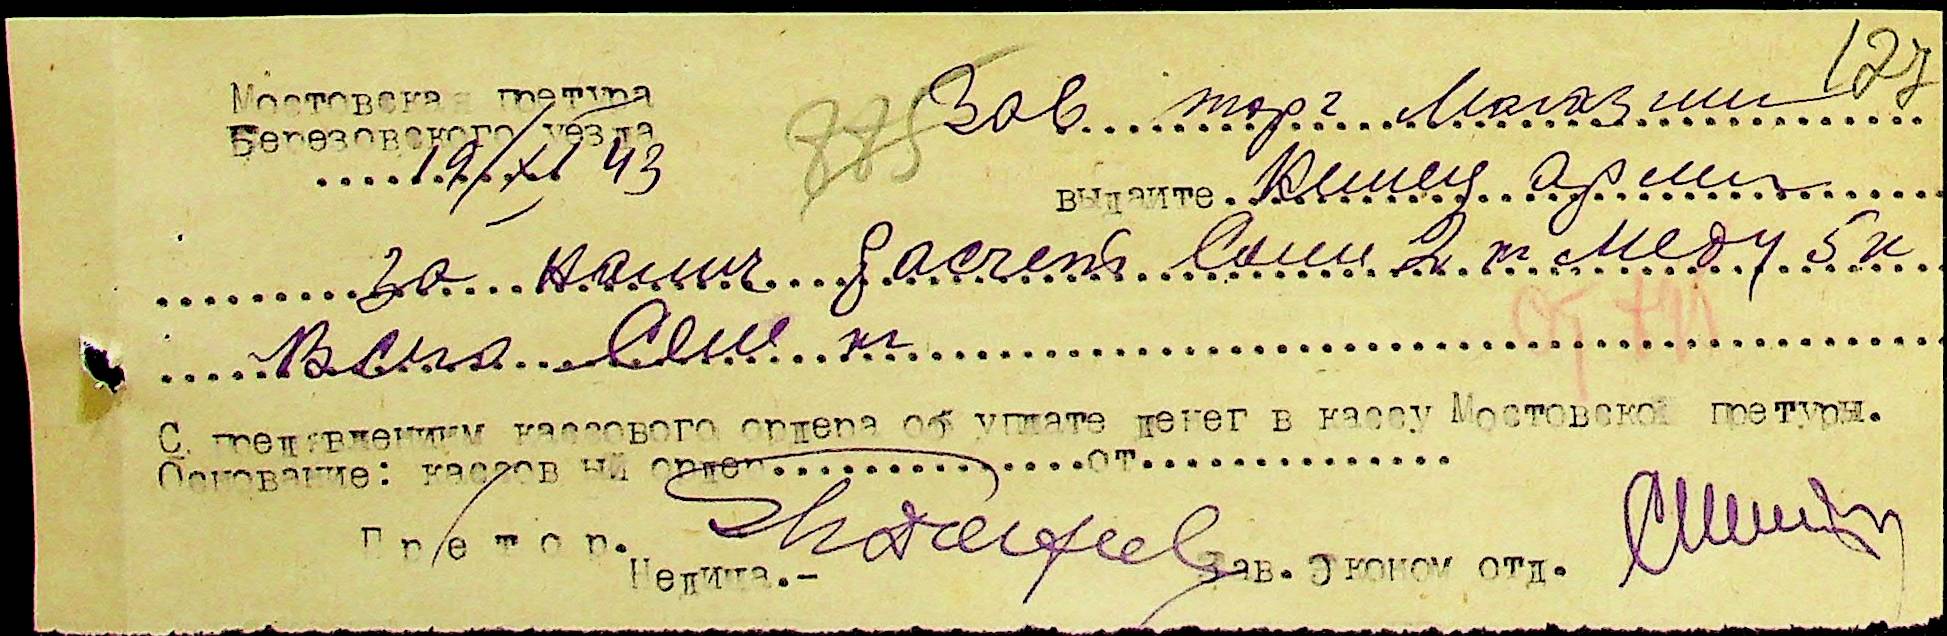 127
Мостовская претура
Березовского уезда
885
Зав торг Магазин
19/XI 43
выдайте
за налич расчет Соли 2 кг Меду 5 к
Всего кг
С пред'явлениим кассового ордера об уплате денег в кассу Мостовской претуры.
Основание: кассов ый ордер...............от..............
Претор.
Недича.-
Зав. Эконом отд.